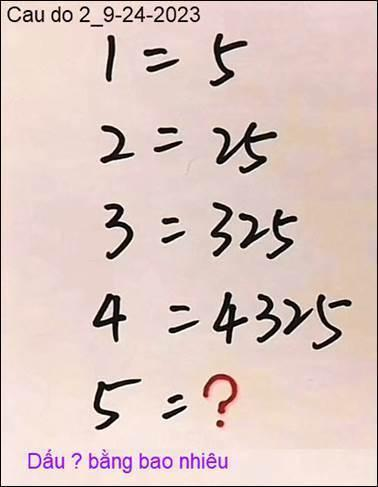 Cau do 2_9-24-2023
1 = 5
2 = 25
3 = 325
4 = 4325
5 = ?
Dấu ? bằng bao nhiêu